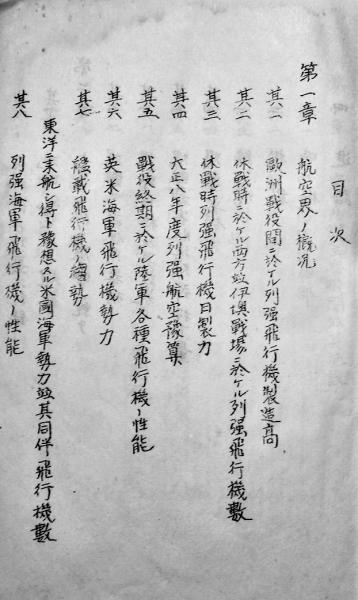 目次
第一章 航空界ノ概況
其一 歐洲戰役間ニ於ケル列强飛行機製造高
其二 休戰時ニ於ケル西方並伊墺戰場ニ於ケル列强飛行機數
其三 休戰時列强飛行機日製力
其四 大正八年度列强航空豫算
其五 戰役終期ニ於ケル陸軍各種飛行機ノ性能
其六 英米海軍飛行機勢力
其七 艦載飛行機ノ趨勢
東洋ニ來航シ得ト豫想スル米國海軍勢力並其同伴飛行機數
其八 列强海軍飛行機ノ性能